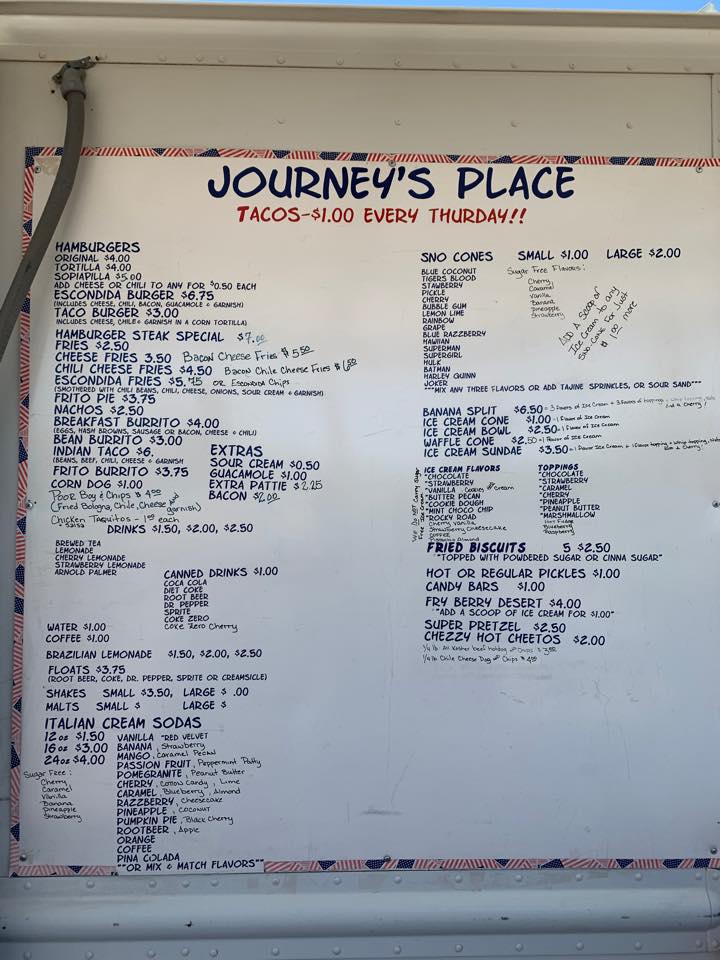 JOURNEY'S PLACE
TACOS-$1.00 EVERY THURDAY!!
HAMBURGERS
ORIGINAL $4.00
TORTILLA $4.00
SOPIAPILLA $5.00
ADD CHEESE OR CHILI TO ANY FOR $0.50 EACH
ESCONDIDA BURGER $6.75
(INCLUDES CHEESE, CHILI, BACON, GUACAMOLE & GARNISH)
TACO BURGER $3.00
INCLUDES CHEESE, CHILE & GARNISH IN A CORN TORTILLA)
HAMBURGER STEAK SPECIAL $7.00
FRIES $2.50
CHEESE FRIES 3.50 Bacon Cheese Fries $5.50
CHILI CHEESE FRIES $4.50 Bacon Chile Cheese Fries $6.50
ESCONDIDA FRIES $5.75 or Escondida Chips
(SMOTHERED WITH CHILI BEANS, CHILI, CHEESE, ONIONS, SOUR CREAM & GARNISH)
FRITO PIE $3.75
NACHOS $2.50
BREAKFAST BURRITO $4.00
(EGGS, HASH BROWNS, SAUSAGE OR BACON, CHEESE & CHILI)
BEAN BURRITO $3.00
INDIAN TACO $6.
(BEANS, BEEF, CHILI, CHEESE & GARNISH)
FRITO BURRITO $3.75
CORN DOG $1.00
Poor Boy & Chips $4.50
(Fried Bologna, Chile, Cheese and garnish)
Chicken Taquitos - 1.00 each
+ salsa
EXTRAS
SOUR CREAM $0.50
GUACAMOLE $1.00
EXTRA PATTIE $2.25
BACON $2.00
DRINKS $1.50, $2.00, $2.50
BREWED TEA
LEMONADE
CHERRY LEMONADE
STRAWBERRY LEMONADE
ARNOLD PALMER
CANNED DRINKS $1.00
COCA COLA
DIET COKE
ROOT BEER
DR. PEPPER
SPRITE
COKE ZERO
Coke Zero Cherry
WATER $1.00
COFFEE $1.00
BRAZILIAN LEMONADE $1.50, $2.00, $2.50
FLOATS $3.75
(ROOT BEER, COKE, DR. PEPPER, SPRITE OR CREAMSICLE)
SHAKES SMALL $3.50, LARGE $ .00
MALTS SMALL $ LARGE $
ITALIAN CREAM SODAS
12 oz $1.50
16 oz $3.00
24oz $4.00
Sugar Free:
Cherry
Caramel
Vanilla
Banana
Pineapple
Strawberry
VANILLA *RED VELVET
BANANA, Strawberry
MANGO, Caramel Pecan
PASSION FRUIT, Peppermint Patty
POMEGRANITE, Peanut Butter
CHERRY, Cotton Candy, Lime
CARAMEL, Blueberry, Almond
RAZZBERRY, Cheesecake
PINEAPPLE, Coconut
PUMPKIN PIE, Black Cherry
ROOTBEER, Apple
ORANGE
COFFEE
PINA COLADA
**OR MIX & MATCH FLAVORS**
SNO CONES SMALL $1.00 LARGE $2.00
BLUE COCONUT
TIGERS BLOOD
STAWBERRY
PICKLE
CHERRY
BUBBLE GUM
LEMON LIME
RAINBOW
GRAPE
BLUE RAZZBERRY
HAWAIIAN
SUPERMAN
SUPERGIRL
HULK
BATMAN
HARLEY QUINN
JOKER
Sugar Free Flavors:
Cherry
Caramel
Vanilla
Banana
Pineapple
Strawberry
ADD A Scoop of
Ice Cream to any
Sno-Cone For Just
$1.00 more
***MIX ANY THREE FLAVORS OR ADD TAJINE SPRINCLES, OR SOUR SAND***
BANANA SPLIT $6.50 - 3 flavors of Ice Cream + 3 flavors of toppings
ICE CREAM CONE $1.00 - 1 flavor of Ice Cream
ICE CREAM BOWL $2.50 - 1 flavor of Ice Cream
WAFFLE CONE $2.50 - 1 flavor of Ice Cream
ICE CREAM SUNDAE $3.50 - 1 flavor Ice Cream + 1 flavor topping + whip topping, nuts
We Do NOT Carry Sugar Free Ice Cream
ICE CREAM FLAVORS
*CHOCOLATE
*STRAWBERRY
*VANILLA Cookies & Cream
*BUTTER PECAN
*COOKIE DOUGH
*MINT CHOCO CHIP
*ROCKY ROAD
Cherry Vanilla
Strawberry Cheesecake
Coffee
TOPPINGS
*CHOCOLATE
*STRAWBERRY
*CARAMEL
*CHERRY
*PINEAPPLE
*PEANUT BUTTER
*MARSHMALLOW
Hot Fudge
Blueberry
Raspberry
FRIED BISCUITS 5 $2.50
"TOPPED WITH POWDERED SUGAR OR CINNA SUGAR"
HOT OR REGULAR PICKLES $1.00
CANDY BARS $1.00
FRY BERRY DESERT $4.00
"ADD A SCOOP OF ICE CREAM FOR $1.00"
SUPER PRETZEL $2.50
CHEZZY HOT CHEETOS $2.00
1/4 lb. All Kosher beef hotdog w/ Chips $3.50
1/4 lb Chile Cheese Dog w/ Chips $4.50